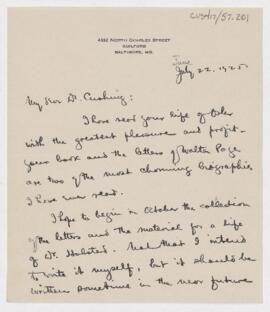 CUS417/57.201
4332 NORTH CHARLES STREET
GUILFORD
BALTIMORE, MD.
June
July 22, 1925.
My dear Dr. Cushing:
I have read your life of Osler
with the greatest pleasure and profit.
Your book and the letters of Walter Page
are two of the most charming biographies
I have ever read.
I hope to begin in October the collection
of the letters and the material for a life
of Dr. Halsted. Not that I intend
to write it myself, but it should be
written sometime in the near future